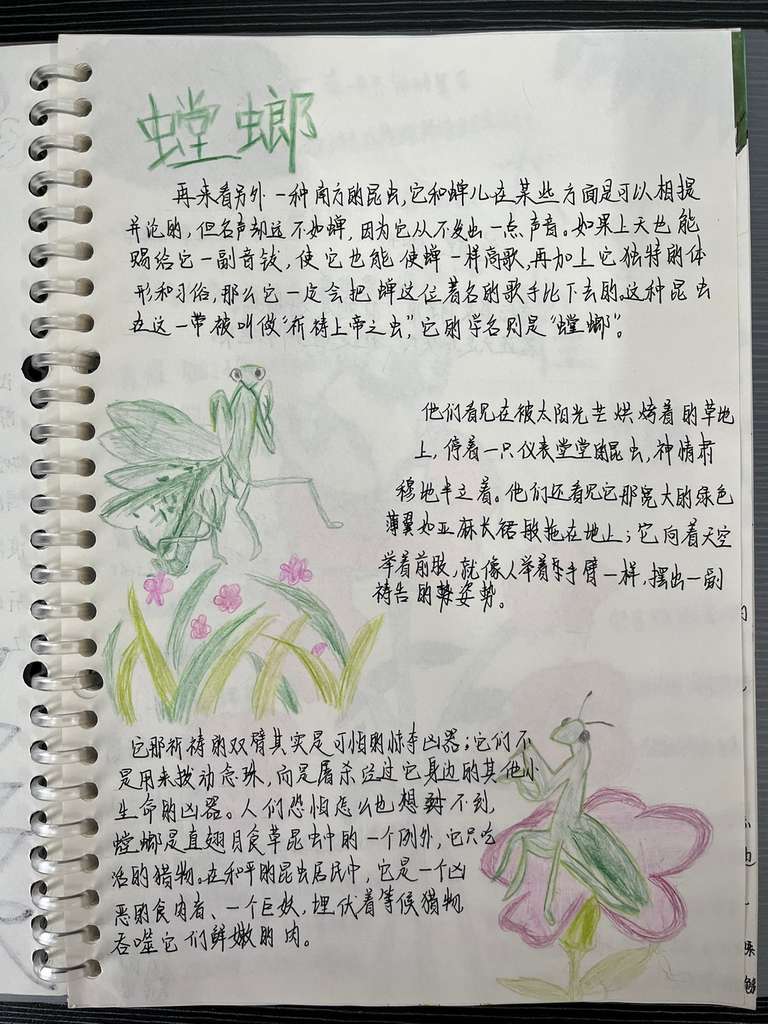 螳螂
再来看另外一种南方的昆虫，它和蝉儿在某些方面是可以相提
并论的，但名声却远不如蝉，因为它从不发出一点声音。如果上天也能
赐给它一副音钹，使它也能使蝉一样高歌，再加上它独特的体
形和习俗，那么它一定会把蝉这位著名的歌手比下去的。这种昆虫
在这一带被叫做“祈祷上帝之虫”，它的学名则是“螳螂”。
他们看见在被太阳光芒烘烤着的草地
上，停着一只仪表堂堂的昆虫，神情肃
穆地半立着。他们还看见它那宽大的绿色
薄翼如亚麻长裙般拖在地上；它向着天空
举着前肢，就像人举着手臂一样，摆出一副
祷告的姿势。
它那祈祷的双臂其实是可怕的掠夺凶器；它们不
是用来拨动念珠，而是屠杀经过它身边的其他小
生命的凶器。人们恐怕怎么也想不到，
螳螂是直翅目食草昆虫中的一个例外，它只吃
活的猎物。在和平的昆虫居民中，它是一个凶
恶的食肉者、一个巨妖，埋伏着等候猎物
吞噬它们鲜嫩的肉。